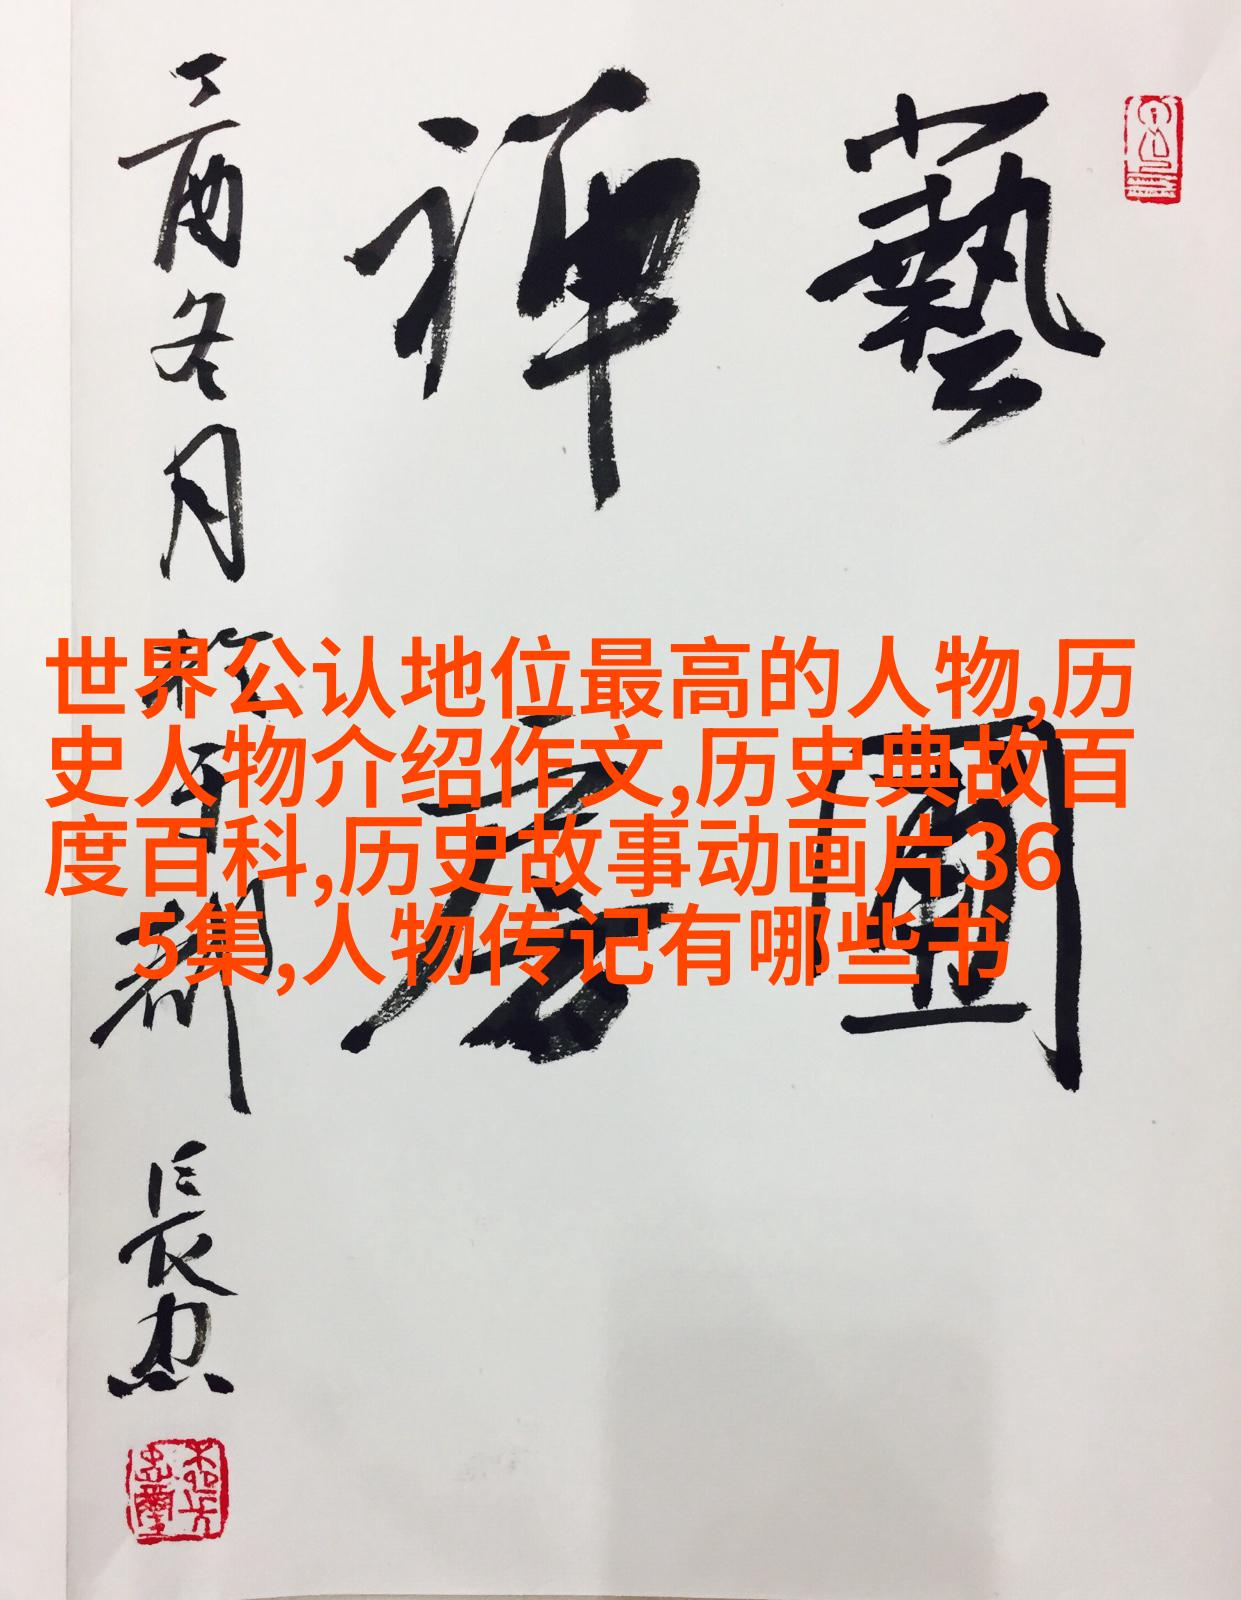 藝
禅
丁酉冬月於
長忠
世界公认地位最高的人物,历
史人物介绍作文,历史典故百
度百科,历史故事动画片36
5集,人物传记有哪些书